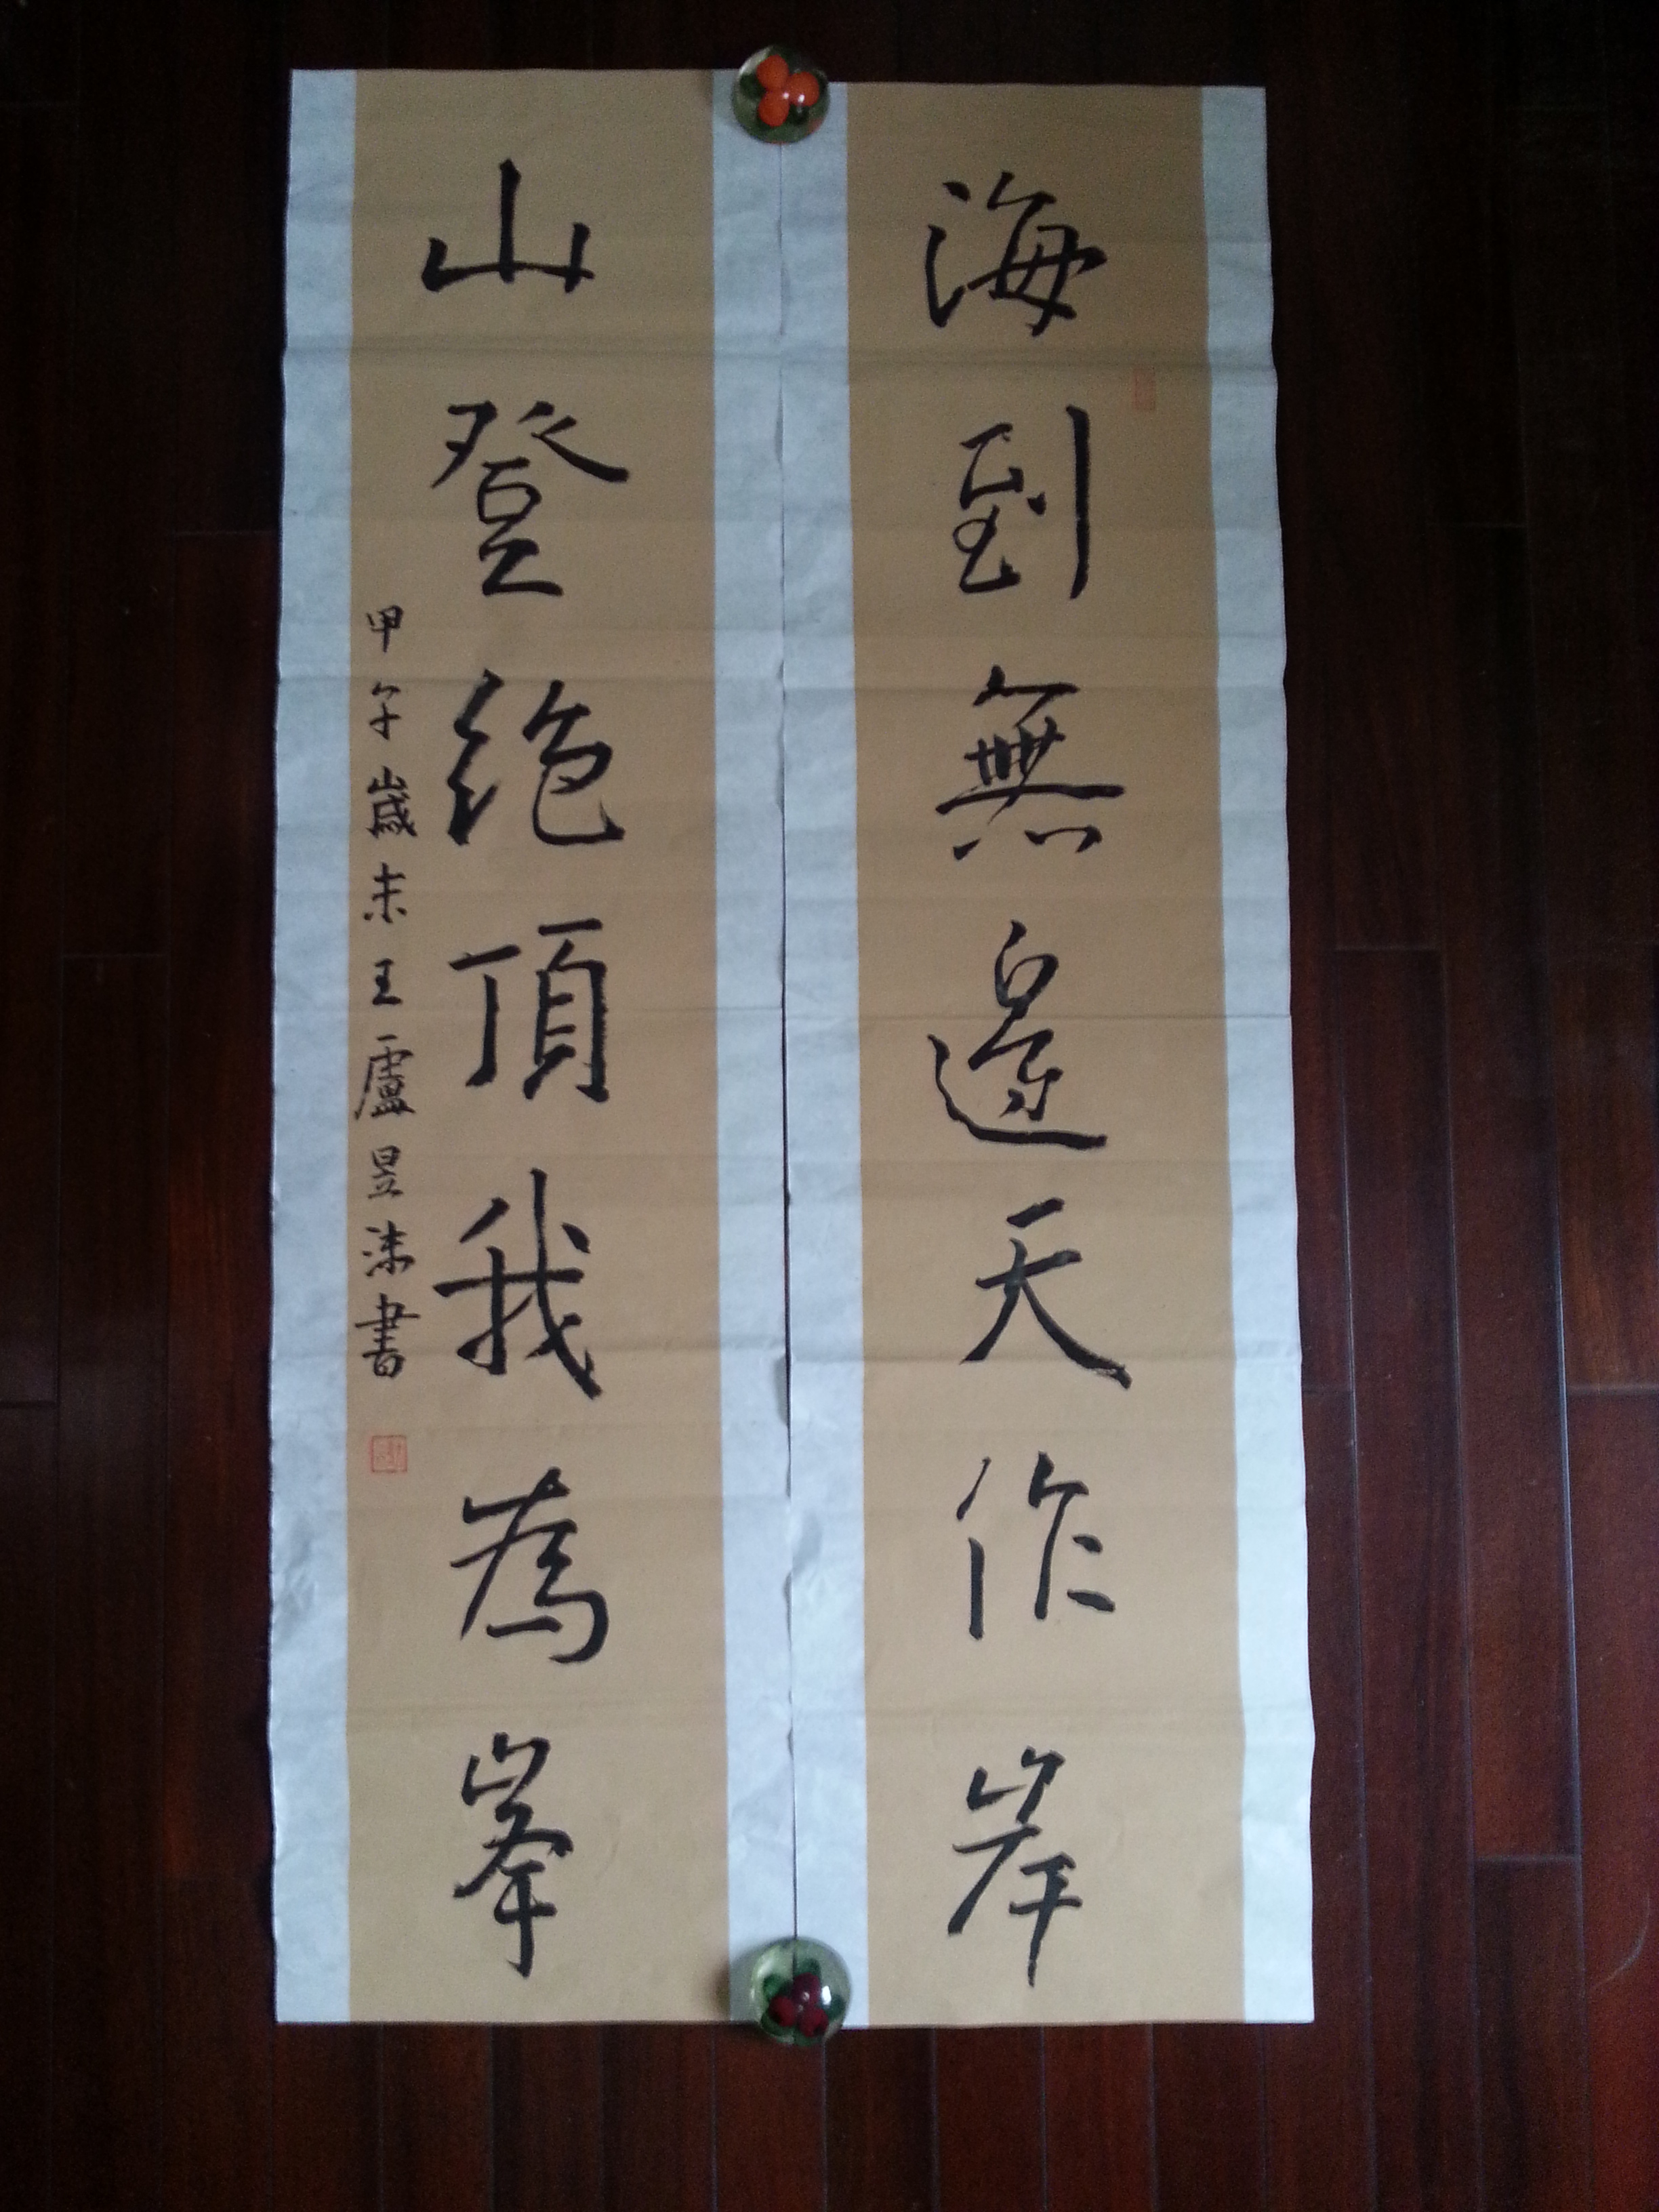 海到無邊天作岸
山登絕頂我為峯
甲午歲末王盧昱洡書